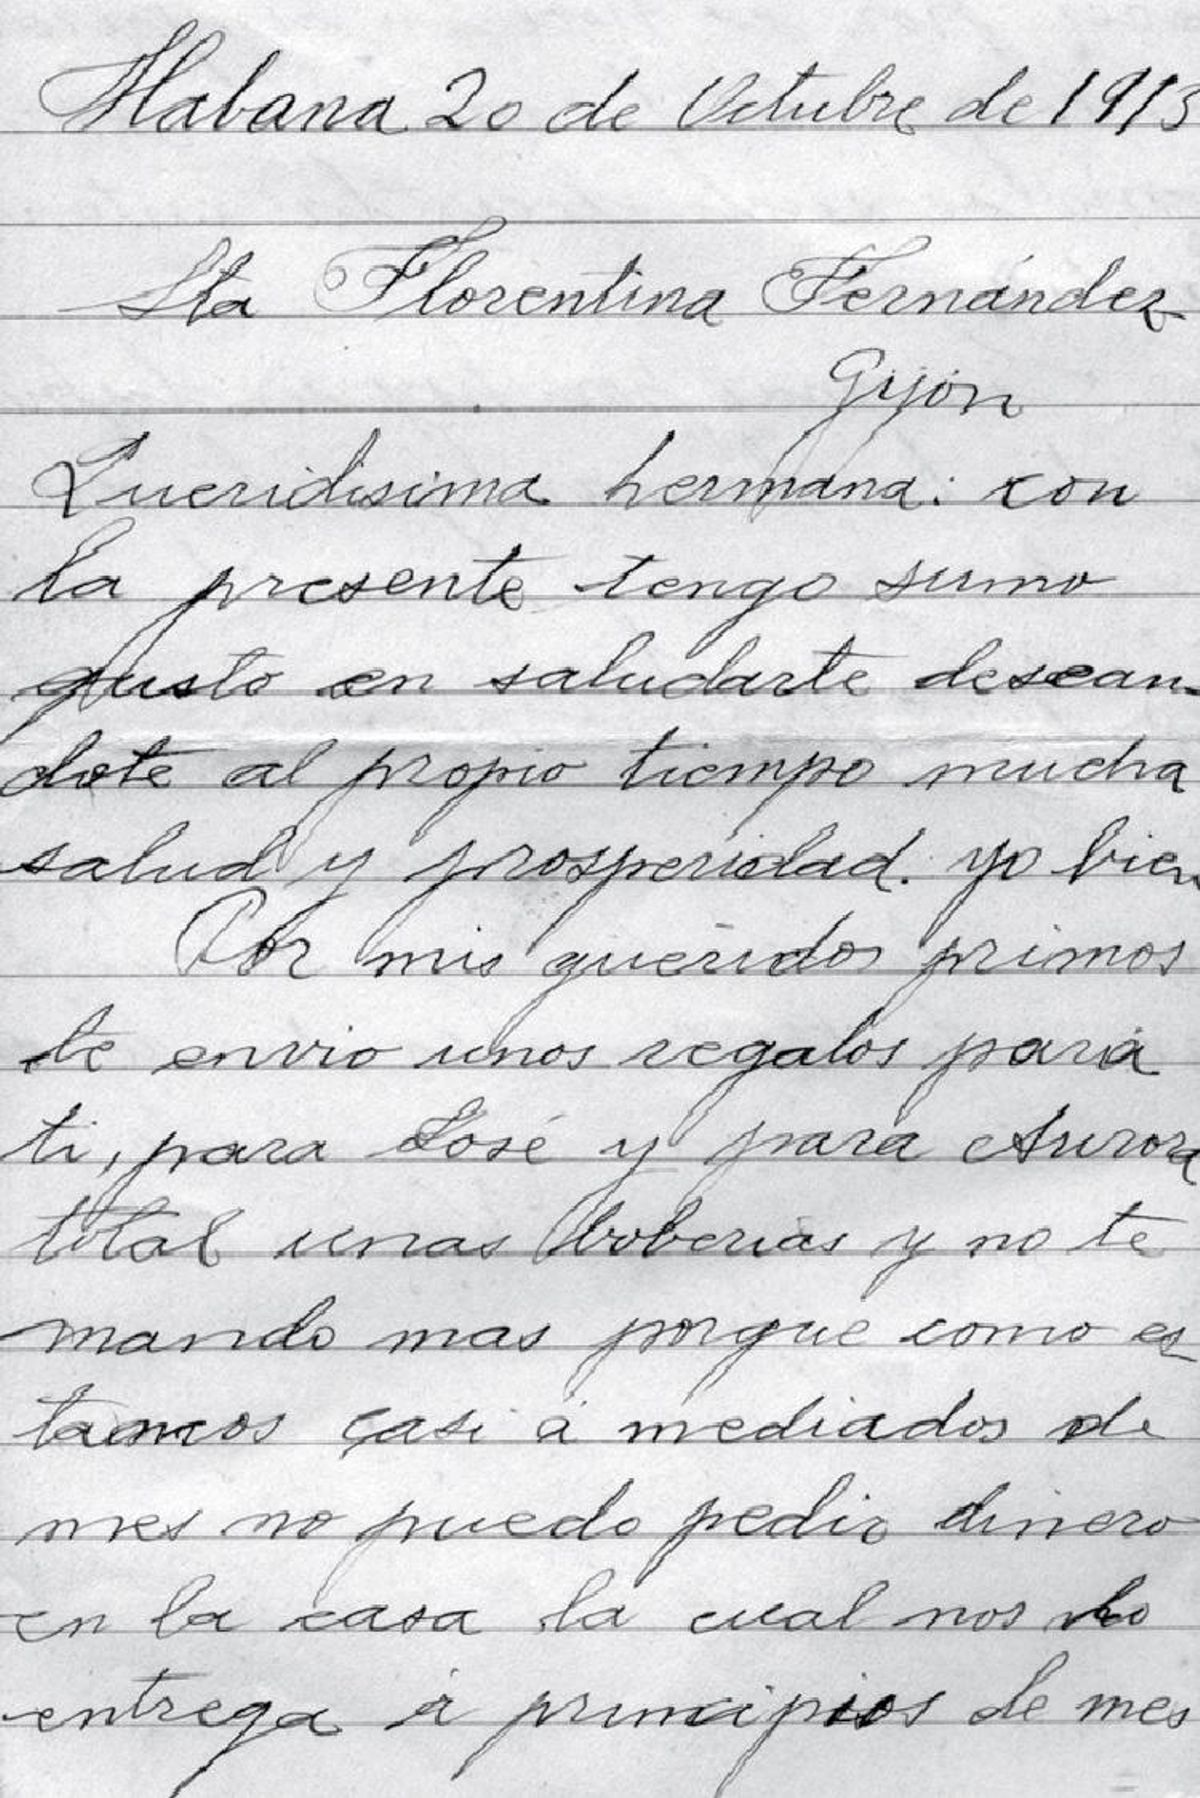 Habana 20 de Octubre de 1913
Sta Florentina Fernández
Gijón
Queridisima hermana: con
la presente tengo sumo
gusto en saludarte desean-
dote al propio tiempo mucha
salud y prosperidad. yo bien
Por mis queridos primos
te envio unos regalos para
ti, para José y para Aurora
total unas boberias y no te
mando mas porque como es
tamos casi á mediados de
mes no puedo pedir dinero
en la casa la cual nos lo
entrega á principios de mes